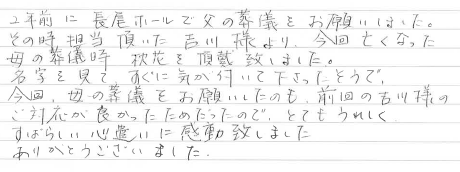 2年前に長尾ホールで父の葬儀をお願いしました。
その時担当頂いた吉川様より、今回亡くなった
母の葬儀時 枕花を頂戴致しました。
名字を見て、すぐに気が付いて下さったそうで、
今回、母の葬儀をお願いしたのも、前回の吉川様の
ご対応が良かったためだったので、とてもうれしく
すばらしい心遣いに感動致しました
ありがとうございました.